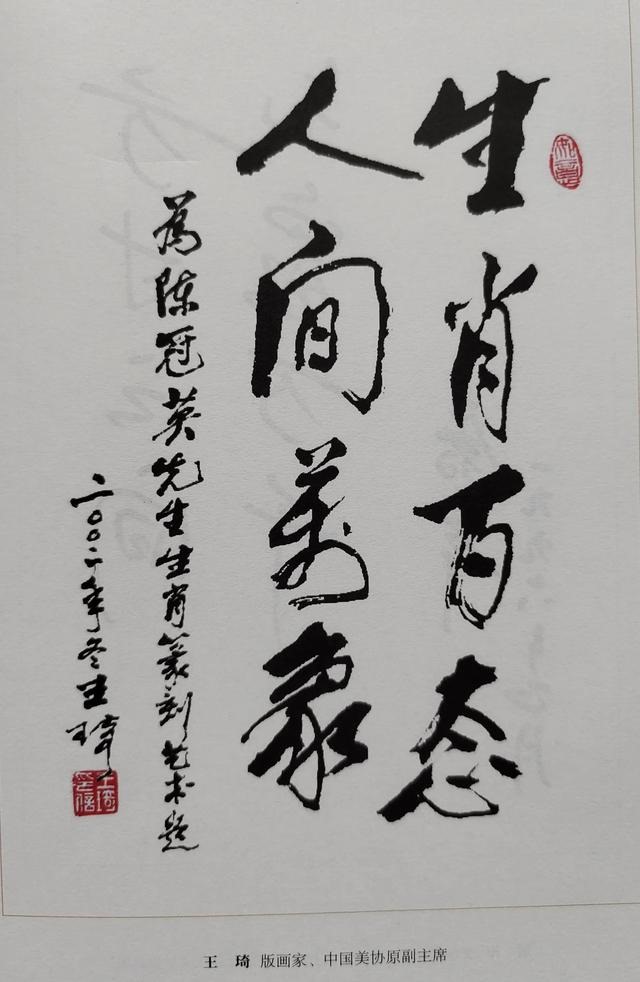 生肖百态
人间萬象
为陈冠英先生生肖篆刻艺术题
二〇〇二年冬王琦
王琦 版画家、中国美协原副主席